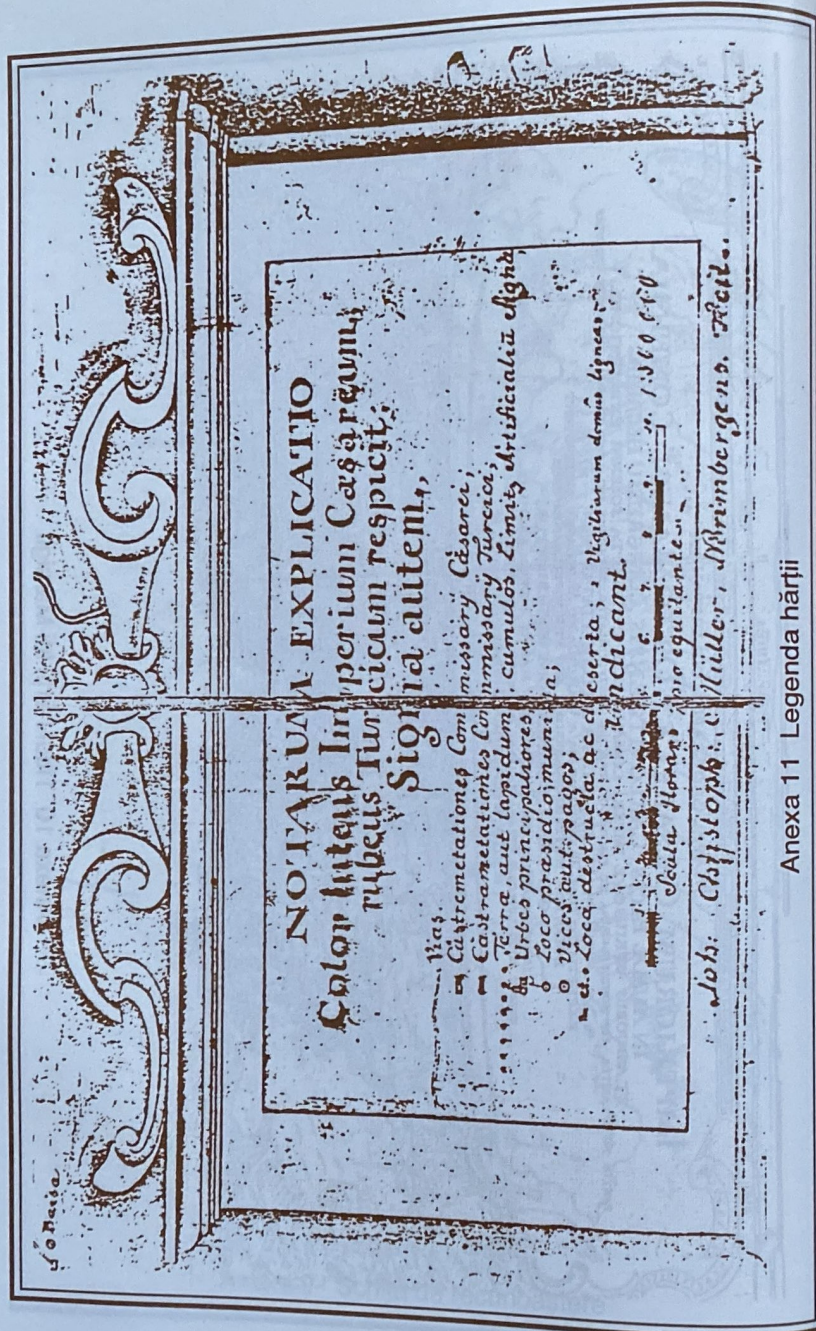 NOTARUM EXPLICATIO
Color luteus Imperium Cæsareum,
rubeus Turcicum respicit;
Signa autem,
Vias.
Castremetationes Commissary Cæsarei;
Castrametationes Commissary Turcici;
Terra, aut lapidum cumulos, Limitū Artificialiū signa,
Urbes principaliores,
Loco præsidio munita;
Vicos aut pagos;
et Loca destructa ac deserta; Vigiliarum domūs ligneas,
Indicant.
6. 7. 8 9. 10. 1:360 000
Scala Horaria pro equitante
Joh. Christoph: Müller, Nrimbergens. Fecit.
Anexa 11 Legenda hărții